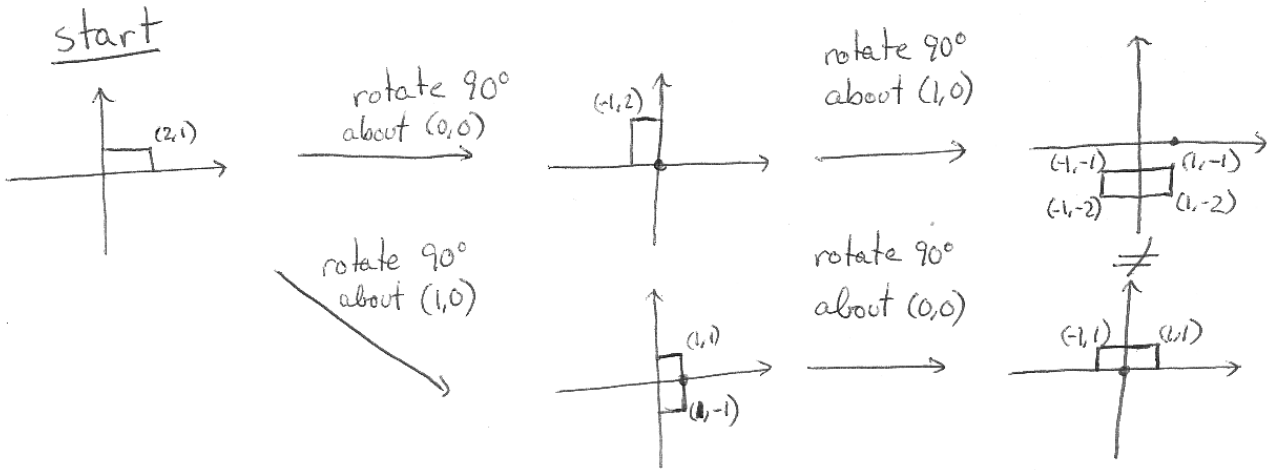 start
(2,1)
rotate 90°
about (0,0)
(-1,2)
rotate 90°
about (1,0)
(-1,-1)
(1,-1)
(-1,-2)
(1,-2)
≠
rotate 90°
about (1,0)
(1,1)
(1,-1)
rotate 90°
about (0,0)
(-1,1)
(1,1)